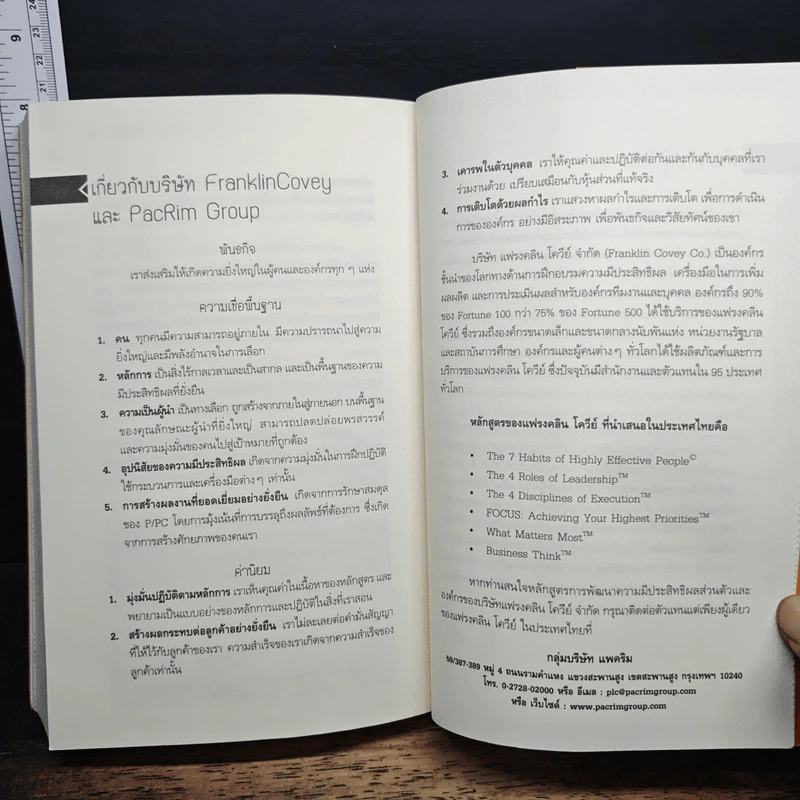 เกี่ยวกับบริษัท FranklinCovey
และ PacRim Group
พันธกิจ
เราส่งเสริมให้เกิดความยิ่งใหญ่ในผู้คนและองค์กรทุก ๆ แห่ง
ความเชื่อพื้นฐาน
1. คน ทุกคนมีความสามารถอยู่ภายใน มีความปรารถนาไปสู่ความ
ยิ่งใหญ่และมีพลังอำนาจในการเลือก
2. หลักการ เป็นสิ่งไร้กาลเวลาและเป็นสากล และเป็นพื้นฐานของความ
มีประสิทธิผลที่ยั่งยืน
3. ความเป็นผู้นำ เป็นทางเลือก ถูกสร้างจากภายในสู่ภายนอก บนพื้นฐาน
ของคุณลักษณะผู้นำที่ยิ่งใหญ่ สามารถปลดปล่อยพรสวรรค์
และความมุ่งมั่นของคนไปสู่เป้าหมายที่ถูกต้อง
4. อุปนิสัยของความมีประสิทธิผล เกิดจากความมุ่งมั่นในการฝึกปฏิบัติ
ใช้กระบวนการและเครื่องมือต่าง ๆ เท่านั้น
5. การสร้างผลงานที่ยอดเยี่ยมอย่างยั่งยืน เกิดจากการรักษาสมดุล
ของ P/PC โดยการมุ่งเน้นที่การบรรลุถึงผลลัพธ์ที่ต้องการ ซึ่งเกิด
จากการสร้างศักยภาพของคนเรา
ค่านิยม
1. มุ่งมั่นปฏิบัติตามหลักการ เราเห็นคุณค่าในเนื้อหาของหลักสูตร และ
พยายามเป็นแบบอย่างของหลักการและปฏิบัติในสิ่งที่เราสอน
2. สร้างผลกระทบต่อลูกค้าอย่างยั่งยืน เราไม่ละเลยต่อคำมั่นสัญญา
ที่ให้ไว้กับลูกค้าของเรา ความสำเร็จของเราเกิดจากความสำเร็จของ
ลูกค้าเท่านั้น
3. เคารพในตัวบุคคล เราให้คุณค่าและปฏิบัติต่อกันและกันกับบุคคลที่เรา
ร่วมงานด้วย เปรียบเสมือนกับหุ้นส่วนที่แท้จริง
4. การเติบโตด้วยผลกำไร เราแสวงหาผลกำไรและการเติบโต เพื่อการดำเนิน
การขององค์กร อย่างมีอิสระภาพ เพื่อพันธกิจและวิสัยทัศน์ของเขา
บริษัท แฟรงคลิน โควีย์ จำกัด (Franklin Covey Co.) เป็นองค์กร
ชั้นนำของโลกทางด้านการฝึกอบรมความมีประสิทธิผล เครื่องมือในการเพิ่ม
ผลผลิต และการประเมินผลสำหรับองค์กรทีมงานและบุคคล องค์กรถึง 90%
ของ Fortune 100 กว่า 75% ของ Fortune 500 ได้ใช้บริการของแฟรงคลิน
โควีย์ ซึ่งรวมถึงองค์กรขนาดเล็กและขนาดกลางนับพันแห่ง หน่วยงานรัฐบาล
และสถาบันการศึกษา องค์กรและผู้คนต่าง ๆ ทั่วโลกได้ใช้ผลิตภัณฑ์และการ
บริการของแฟรงคลิน โควีย์ ซึ่งปัจจุบันมีสำนักงานและตัวแทนใน 95 ประเทศ
ทั่วโลก
หลักสูตรของแฟรงคลิน โควีย์ ที่นำเสนอในประเทศไทยคือ
• The 7 Habits of Highly Effective People©
• The 4 Roles of Leadership™
• The 4 Disciplines of Execution™
• FOCUS: Achieving Your Highest Priorities™
• What Matters Most™
• Business Think™
หากท่านสนใจหลักสูตรการพัฒนาความมีประสิทธิผลส่วนตัวและ
องค์กรของบริษัทแฟรงคลิน โควีย์ จำกัด กรุณาติดต่อตัวแทนแต่เพียงผู้เดียว
ของแฟรงคลิน โควีย์ ในประเทศไทยที่
กลุ่มบริษัท แพคริม
59/387-389 หมู่ 4 ถนนรามคำแหง แขวงสะพานสูง เขตสะพานสูง กรุงเทพฯ 10240
โทร. 0-2728-02000 หรือ อีเมล : plc@pacrimgroup.com
หรือ เว็บไซด์ : www.pacrimgroup.com